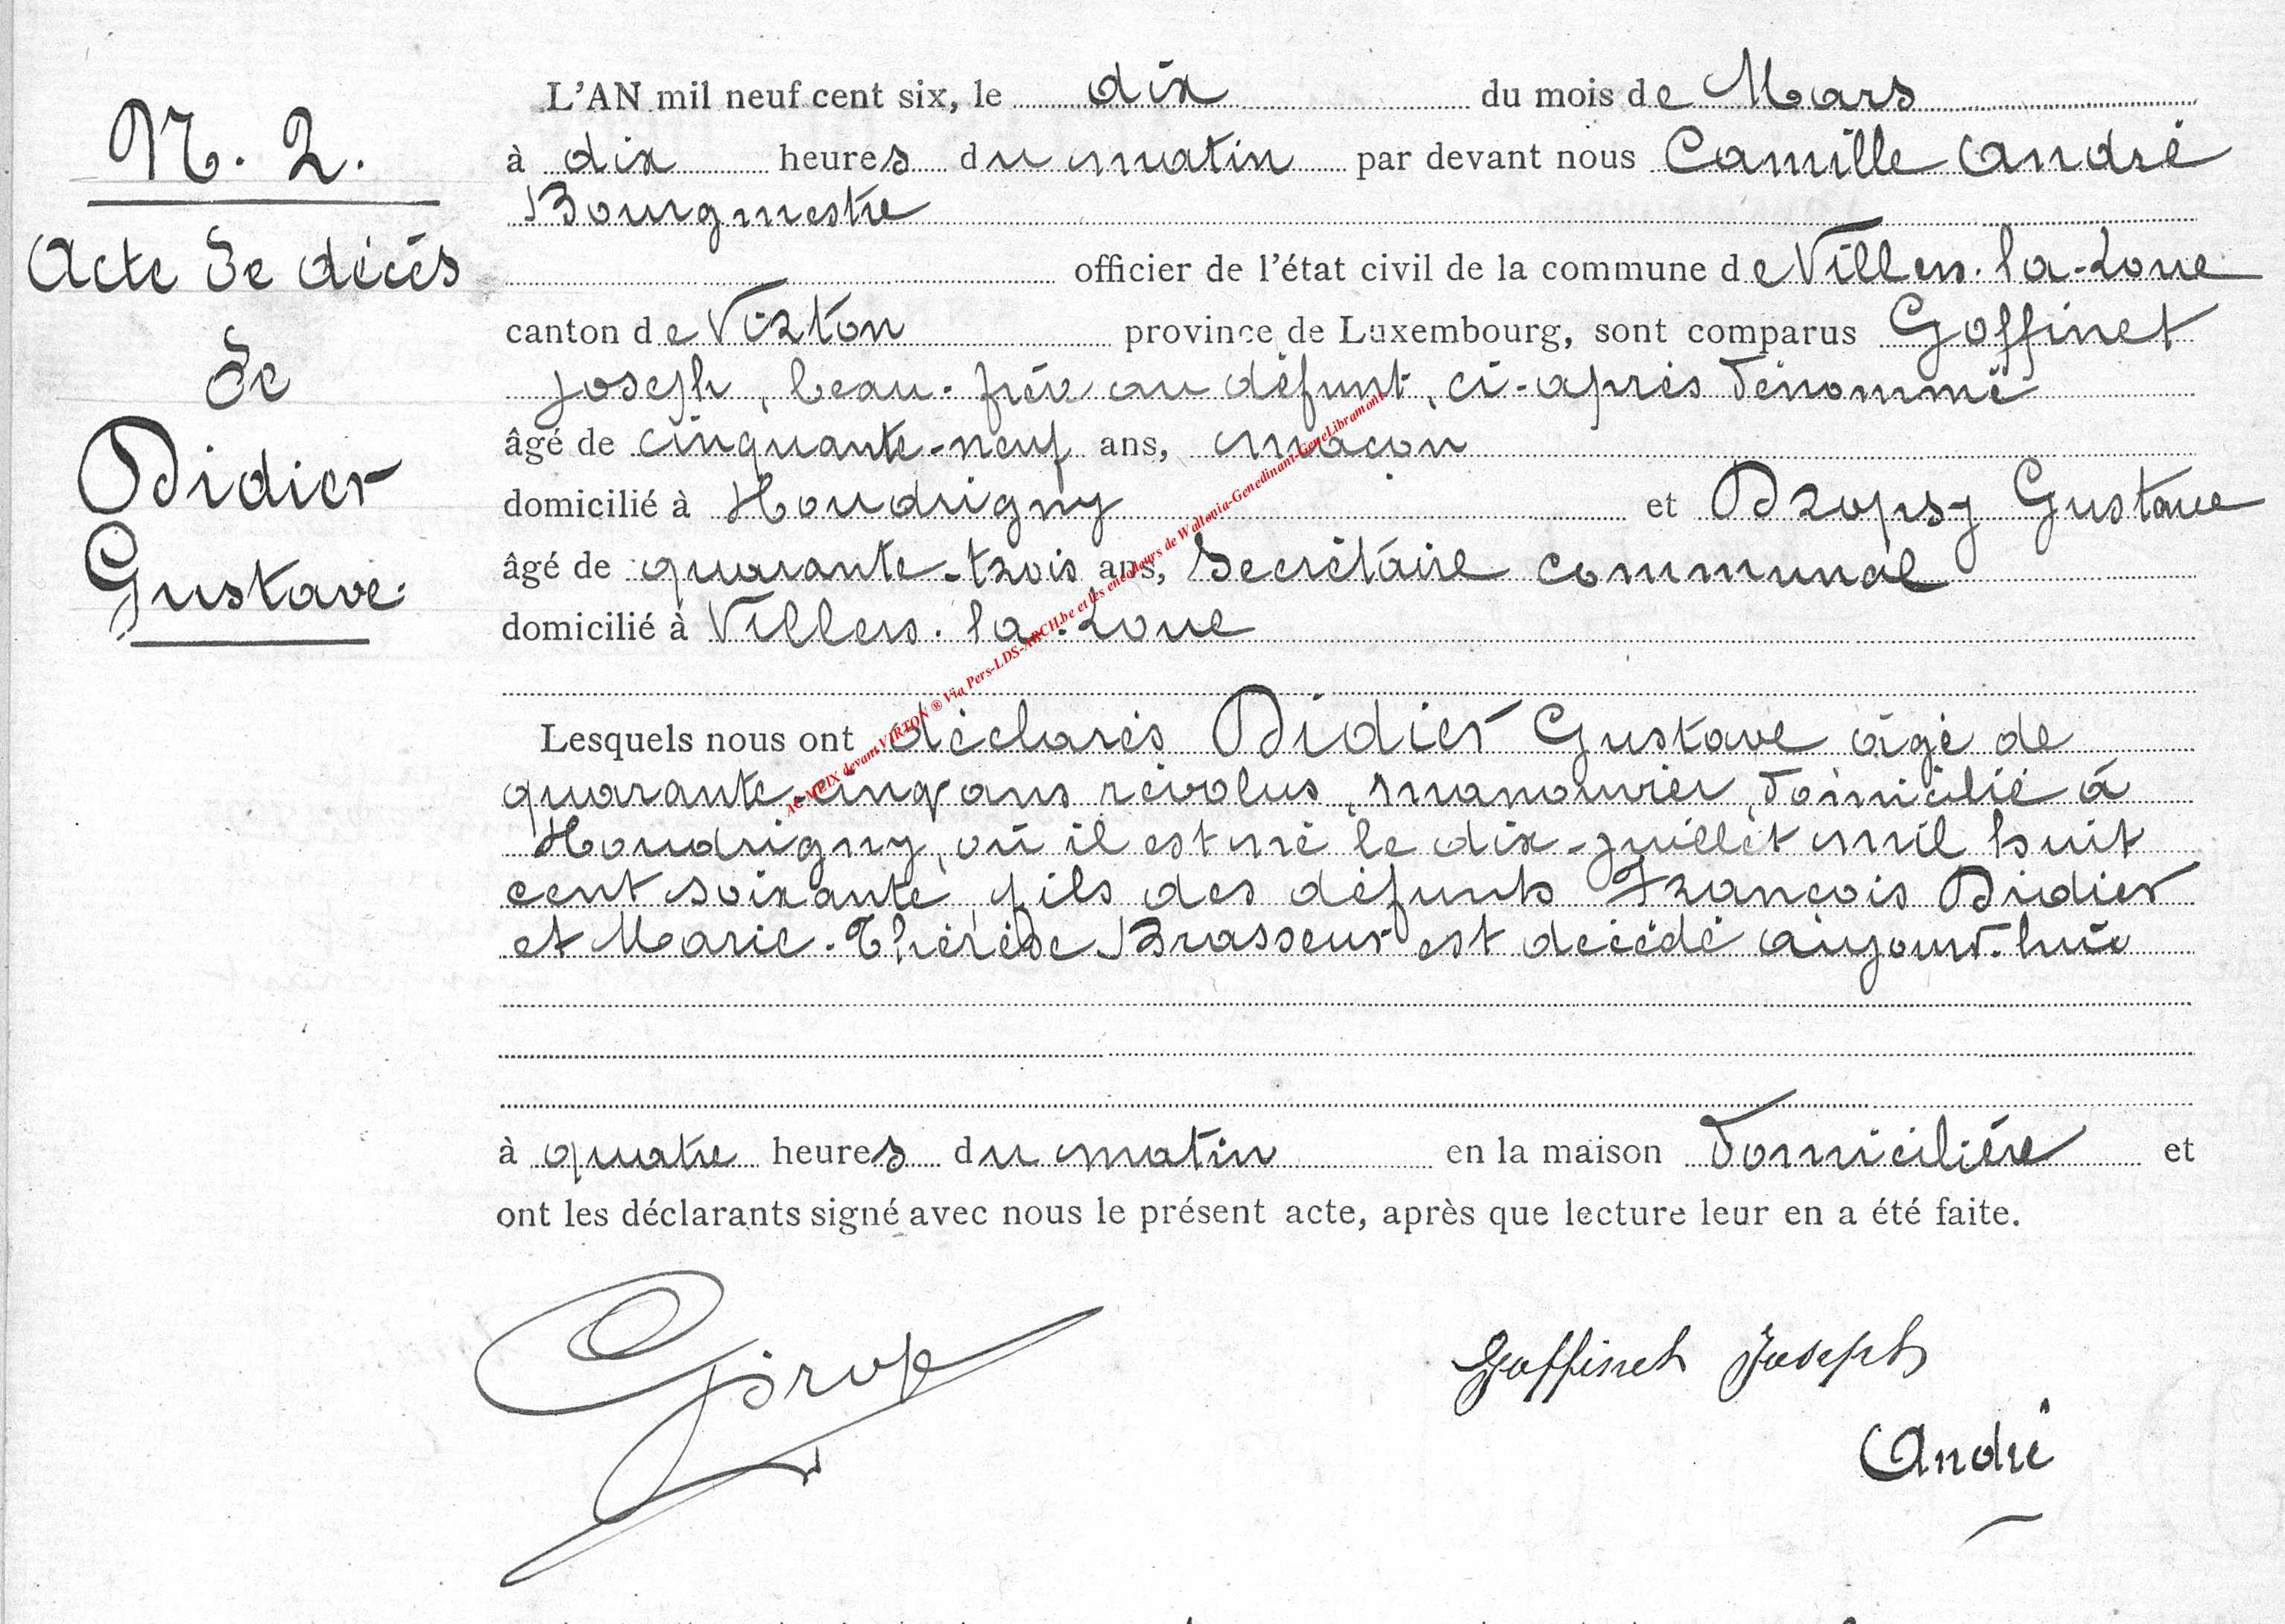 N. 2.
Acte de décès
de
Didier
Gustave.
L'AN mil neuf cent six, le dix du mois de Mars
à dix heures du matin par devant nous Camille André
Bourgmestre
officier de l'état civil de la commune de Villers-la-Loue
canton de Virton province de Luxembourg, sont comparus Goffinet
Joseph, beau-frère au défunt, ci-après dénommé
âgé de cinquante-neuf ans, maçon
domicilié à Houdrigny et Dropsy Gustave
âgé de quarante-trois ans, Secrétaire communal
domicilié à Villers-la-Loue
Lesquels nous ont déclarés Didier Gustave âgé de
quarante-cinq ans révolus, manouvrier, domicilié à
Houdrigny, où il est né le dix-juillet mil huit
cent soixante, fils des défunts François Didier
et Marie-Thérèse Brasseur est décédé aujourd'hui
à quatre heures du matin en la maison domicilière et
ont les déclarants signé avec nous le présent acte, après que lecture leur en a été faite.
Goffinet Joseph
André
AC MEIX devant VIRTON ® Via Pers-LDS-ARCH.be et les encodeurs de Wallonia-Genedinant-GeneLibramont